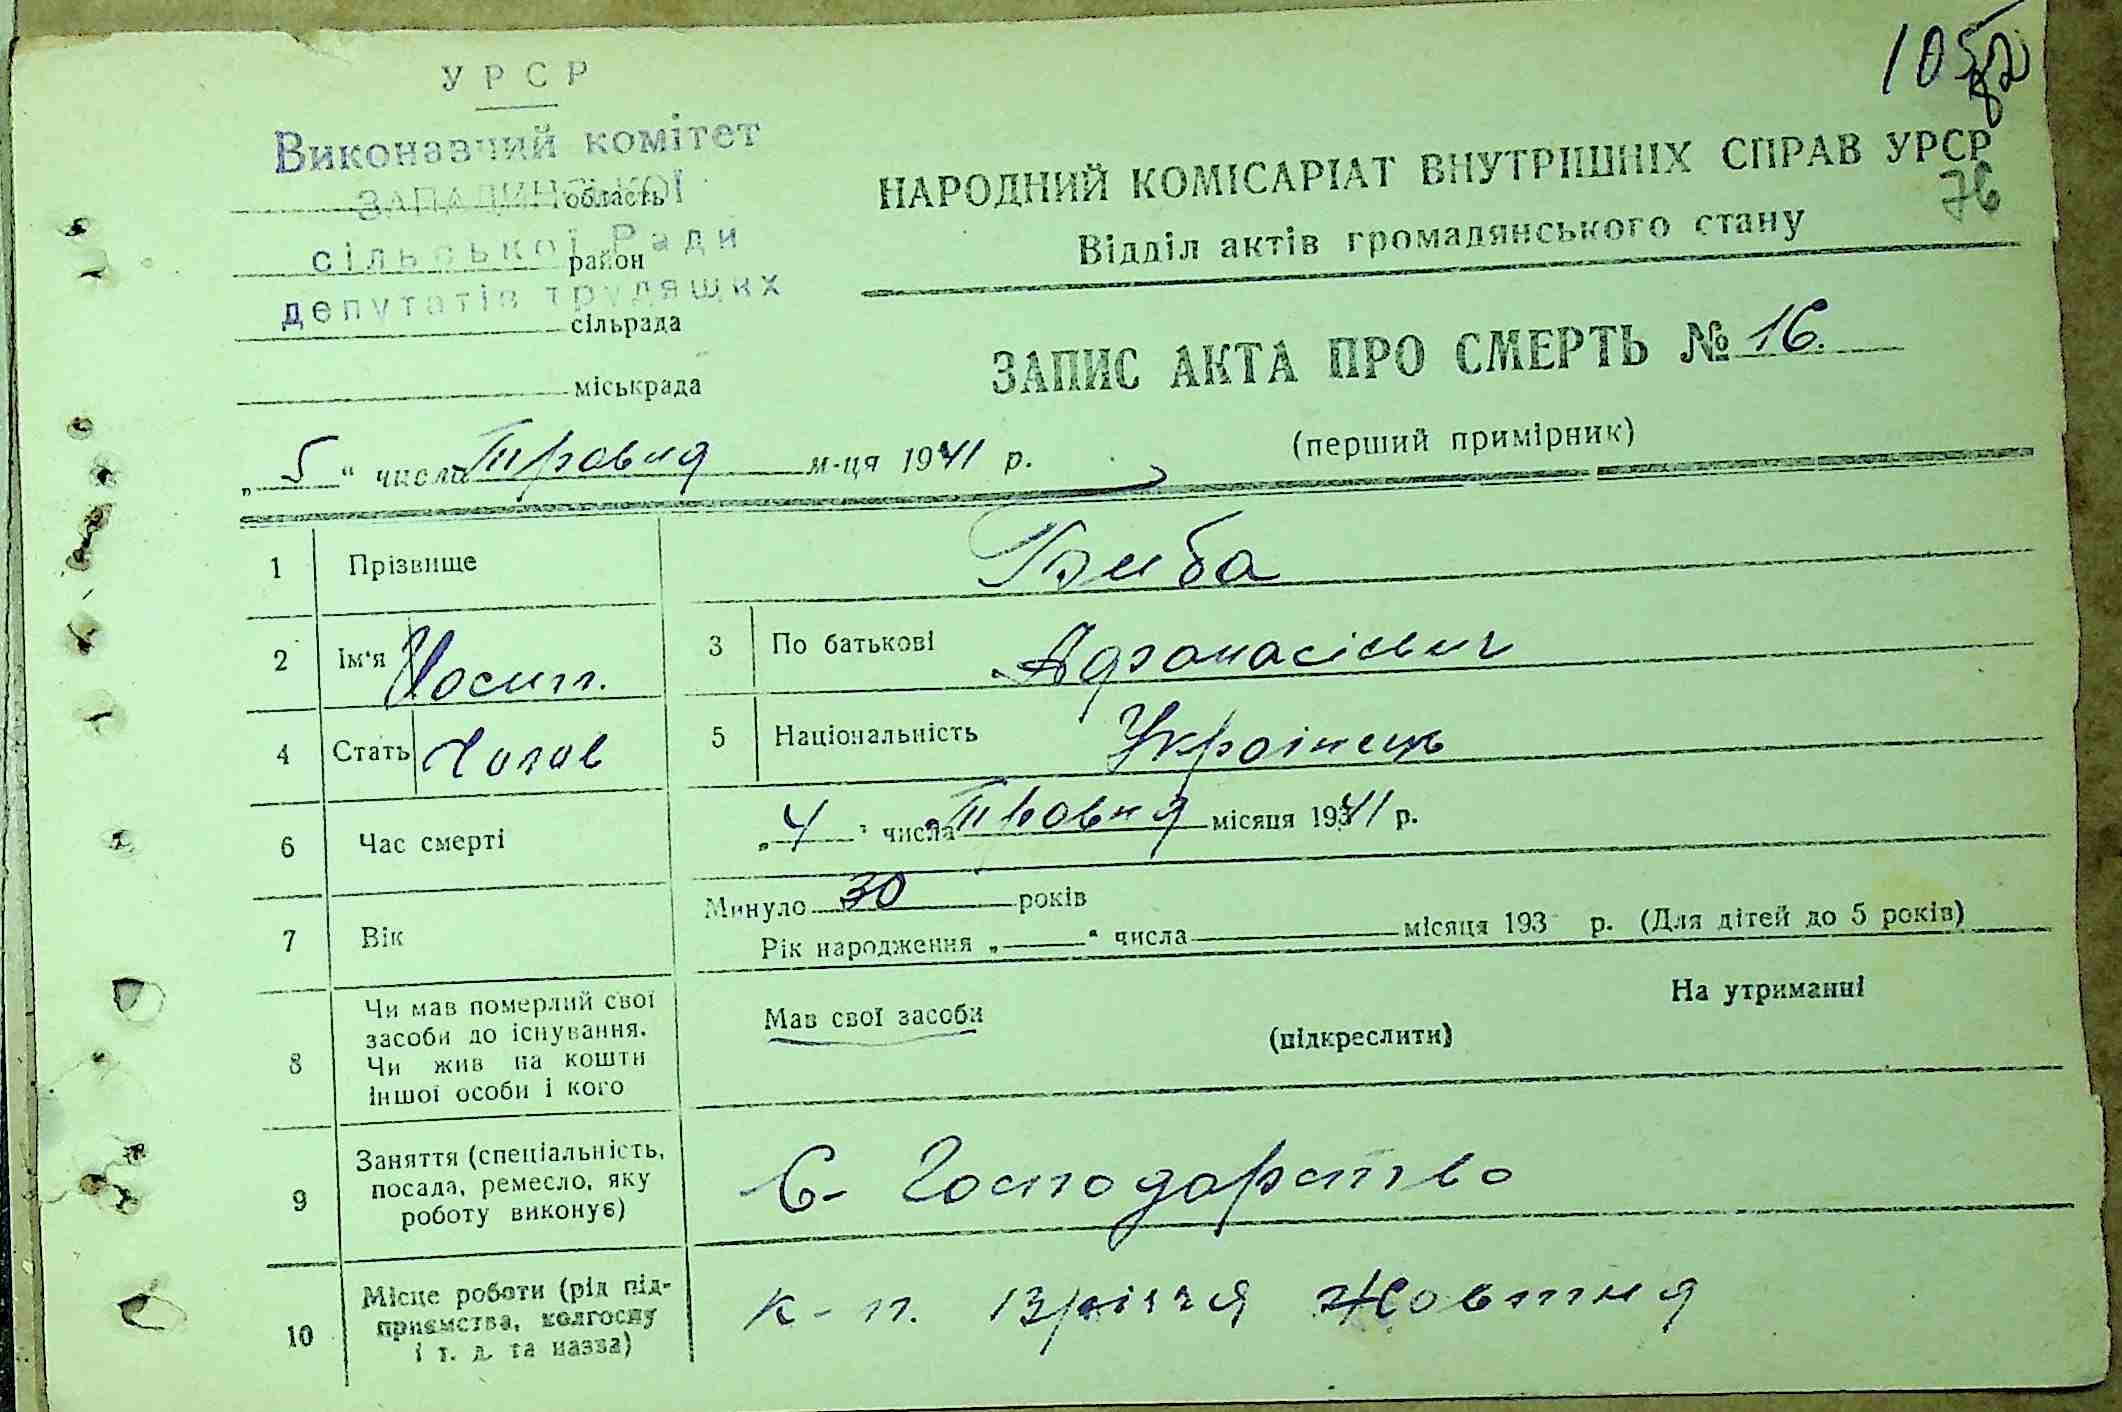 УРСР
Виконавчий комітет
ЗАПАДИНСЬКОЇ
область
сільської Ради
район
депутатів трудящих
сільрада
міськрада
105
76
НАРОДНИЙ КОМІСАРІАТ ВНУТРІШНІХ СПРАВ УРСР
Відділ актів громадянського стану
ЗАПИС АКТА ПРО СМЕРТЬ № 16.
(перший примірник)
„ 5 “ числа Травня м-ця 1941 р.
1 Прізвище
2 Ім'я Йосип.
3 По батькові Афанасієвич
4 Стать Чолов
5 Національність Українець
6 Час смерті „ 4 “ числа Травня місяця 1941 р.
7 Вік Минуло 30 років
Рік народження „ “ числа місяця 193 р. (Для дітей до 5 років)
8 Чи мав померлий свої
засоби до існування.
Чи жив на кошти
іншої особи і кого
Мав свої засоби (підкреслити) На утриманні
9 Заняття (спеціальність,
посада, ремесло, яку
роботу виконує)
С- Господарство
10 Місце роботи (рід під-
приємства, колгоспу
і т. д. та назва)
к-п. 13річчя Жовтня